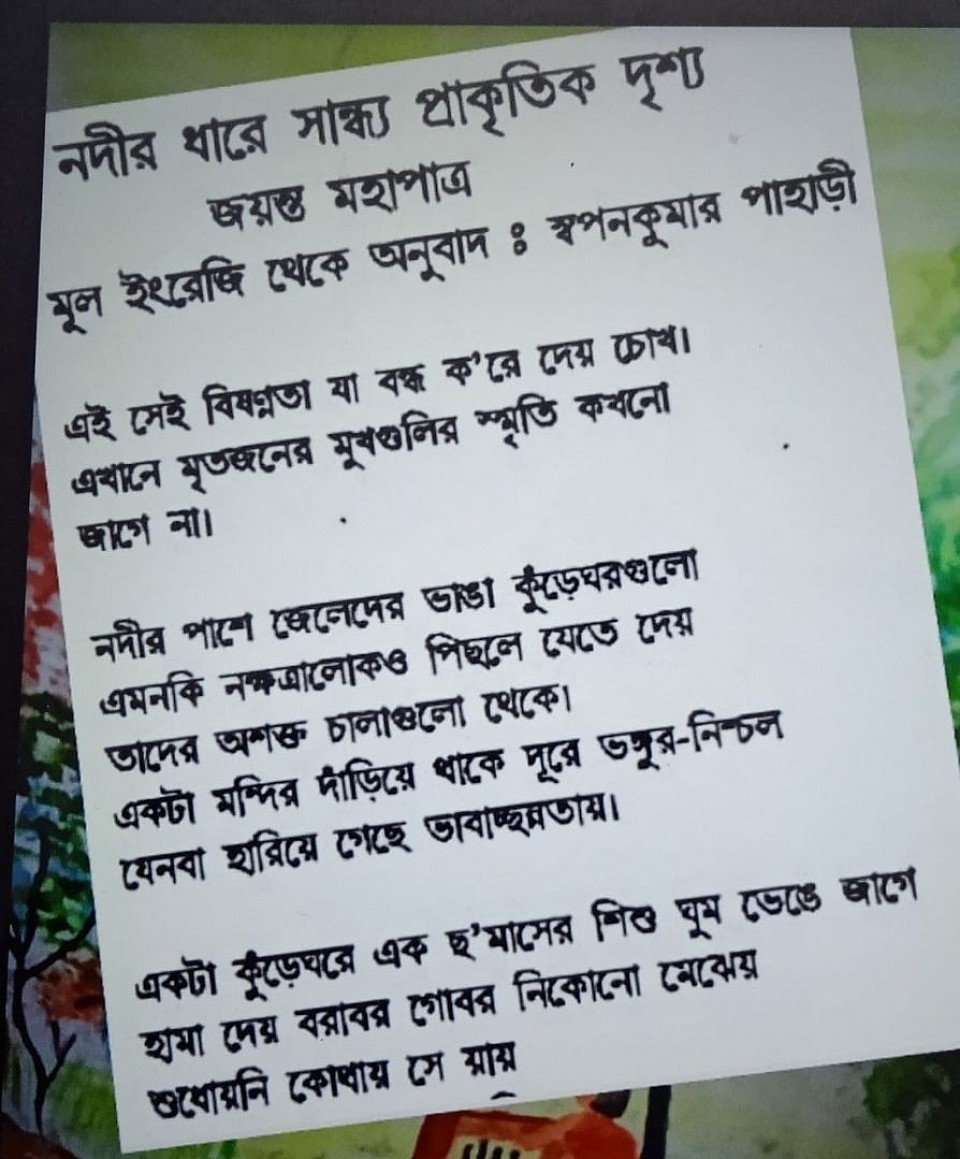 নদীর ধারে সান্ধ্য প্রাকৃতিক দৃশ্য
জয়ন্ত মহাপাত্র
মূল ইংরেজি থেকে অনুবাদ : স্বপনকুমার পাহাড়ী
এই সেই বিষণ্ণতা যা বন্ধ ক'রে দেয় চোখ।
এখানে মৃতজনের মুখগুলির স্মৃতি কখনো
জাগে না।
নদীর পাশে জেলেদের ভাঙা কুঁড়েঘরগুলো
এমনকি নক্ষত্রালোকও পিছলে যেতে দেয়
তাদের অশক্ত চালাগুলো থেকে।
একটা মন্দির দাঁড়িয়ে থাকে দূরে ভঙ্গুর-নিশ্চল
যেনবা হারিয়ে গেছে ভাবাচ্ছন্নতায়।
একটা কুঁড়েঘরে এক ছ'মাসের শিশু ঘুম ভেঙে জাগে
হামা দেয় বরাবর গোবর নিকোনো মেঝেয়
শুধোয়নি কোথায় সে যায়